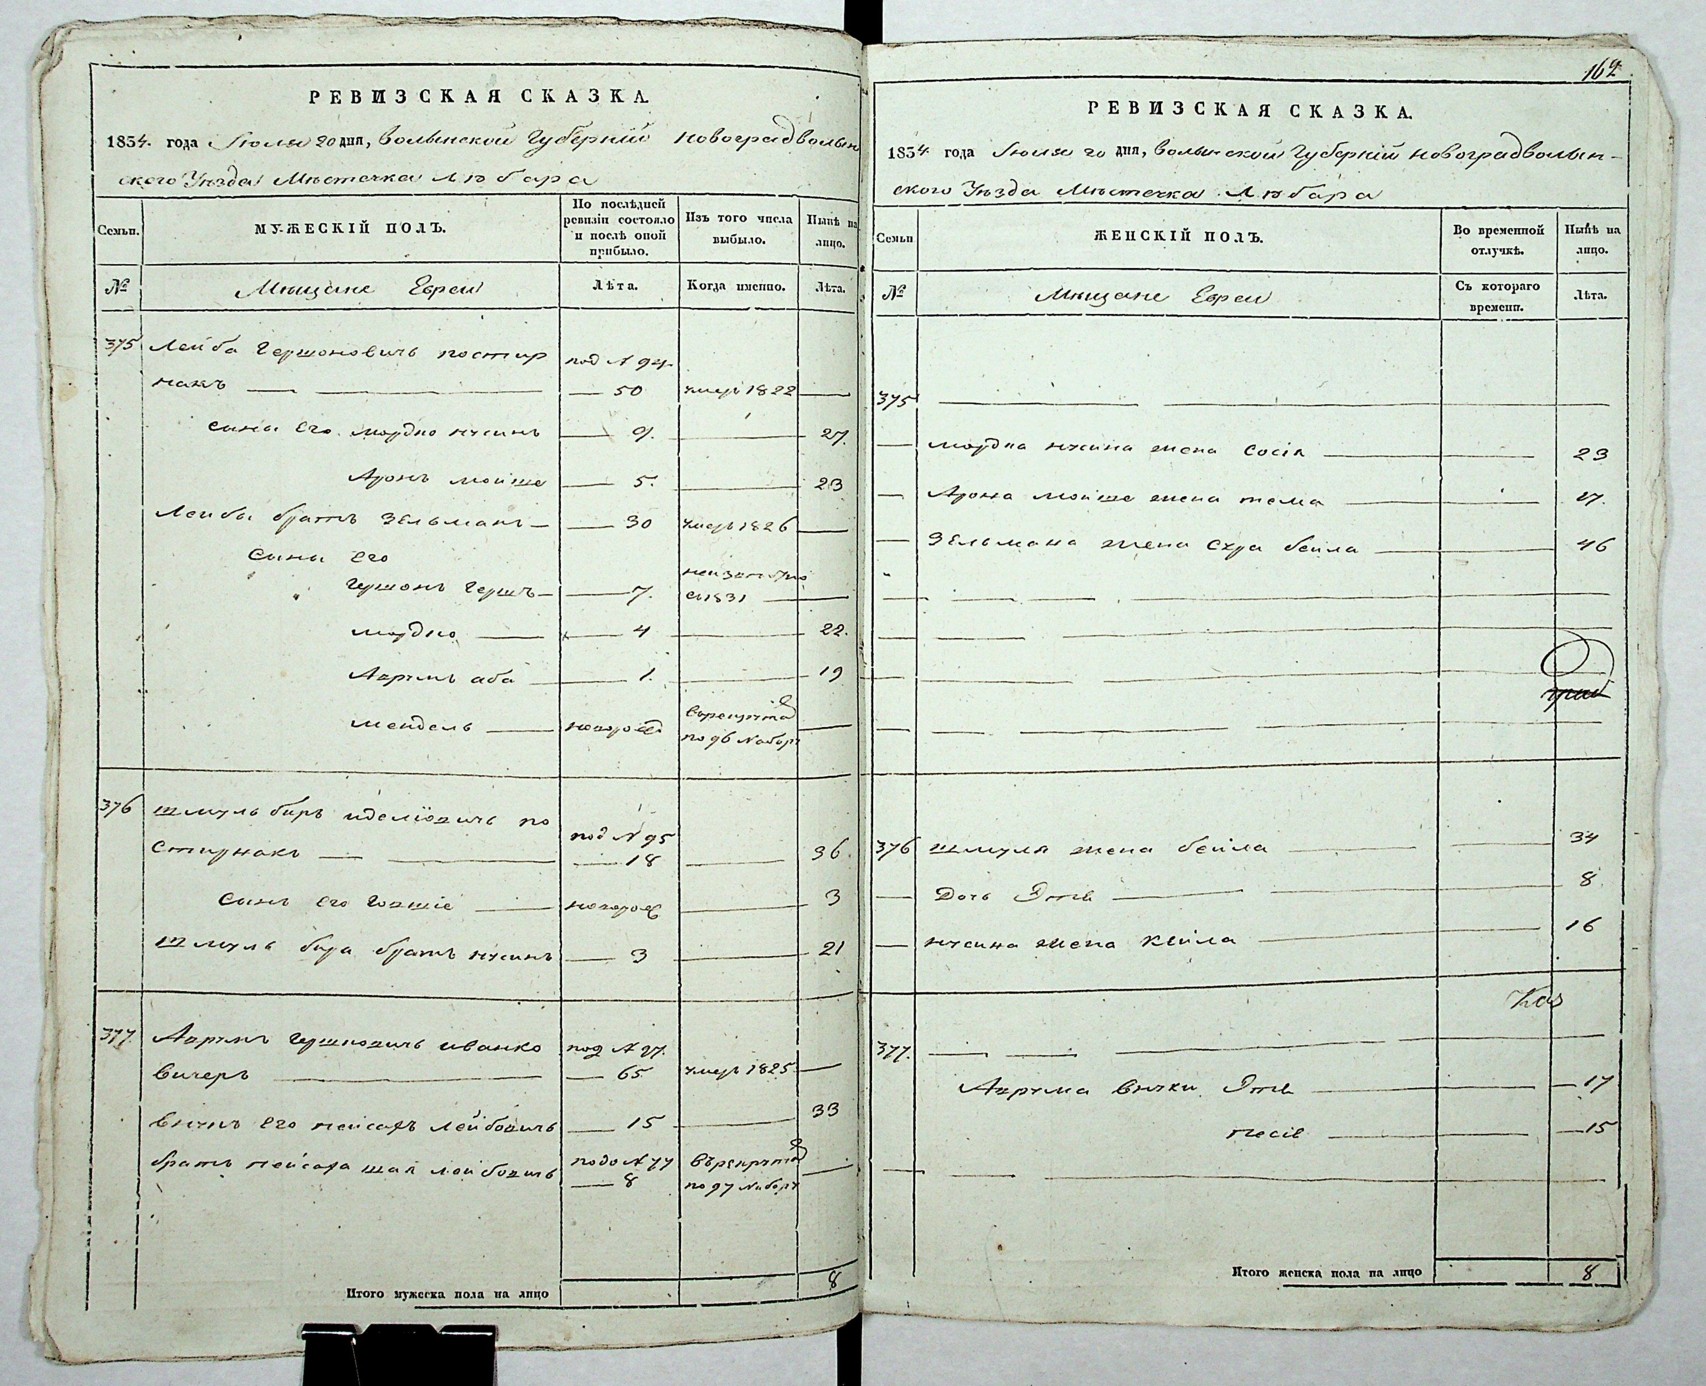 РЕВИЗСКАЯ СКАЗКА.
1834. года Іюля 20 дня, Волынской Губерніи Новоградволын
ского Уѣзда Мѣстечка Любара
Семьи.
МУЖЕСКІЙ ПОЛЪ.
По послѣдней ревизіи состояло и послѣ оной прибыло.
Изъ того числа выбыло.
Нынѣ на лицо.
№
Мѣщане Евреи
Лѣта.
Когда именно.
Лѣта.
375 Лейба Гершоновичъ постир под N 94
накъ — 50 умеръ 1822 —
сыны его мордко нусинъ — 9. — 27.
Аронъ мойше — 5. — 23
Лейбы братъ Зельманъ — 30 умеръ 1826 —
сыны его
Гершонъ Гершъ — 7. съ 1831 —
мордко — 4 — 22.
Аврумъ аба — 1. — 19
мендель — новорож
по 96 Набору —
376 шмуль беръ иделіовичъ по под N 95
стирнакъ — 18 — 36.
сынъ его Говшіе — новорож — 3
шмуль бера братъ нусинъ — 3 — 21
377. Аврумъ Гершковичъ иванко под N 97.
вичеръ — 65 умеръ 1825 —
внукъ его пейсахъ лейбовичъ — 15 — 33
братъ пейсаха шая лейбовичъ подо N 77
— 8 по 97 Набору —
Итого мужеска пола на лицо 8
162
РЕВИЗСКАЯ СКАЗКА.
1834 года Іюля 20 дня, Волынской Губерніи Новоградволын-
ского Уѣзда Мѣстечка Любара
Семьи
ЖЕНСКІЙ ПОЛЪ.
Во временной отлучкѣ.
Нынѣ на лицо.
№
Мѣщане Евреи
Съ котораго времени.
Лѣта.
375 —
— мордка нусина жена сосія — 23
— Арона мойше жена тема — 17.
— Зельмана жена сура бейла — 46
376 шмуля жена бейла — 34
— Дочь Этя — 8
— нусина жена кейла — 16
377. —
Аврума внучки Этя — 17
песіе — 15
Итого женска пола на лицо 8